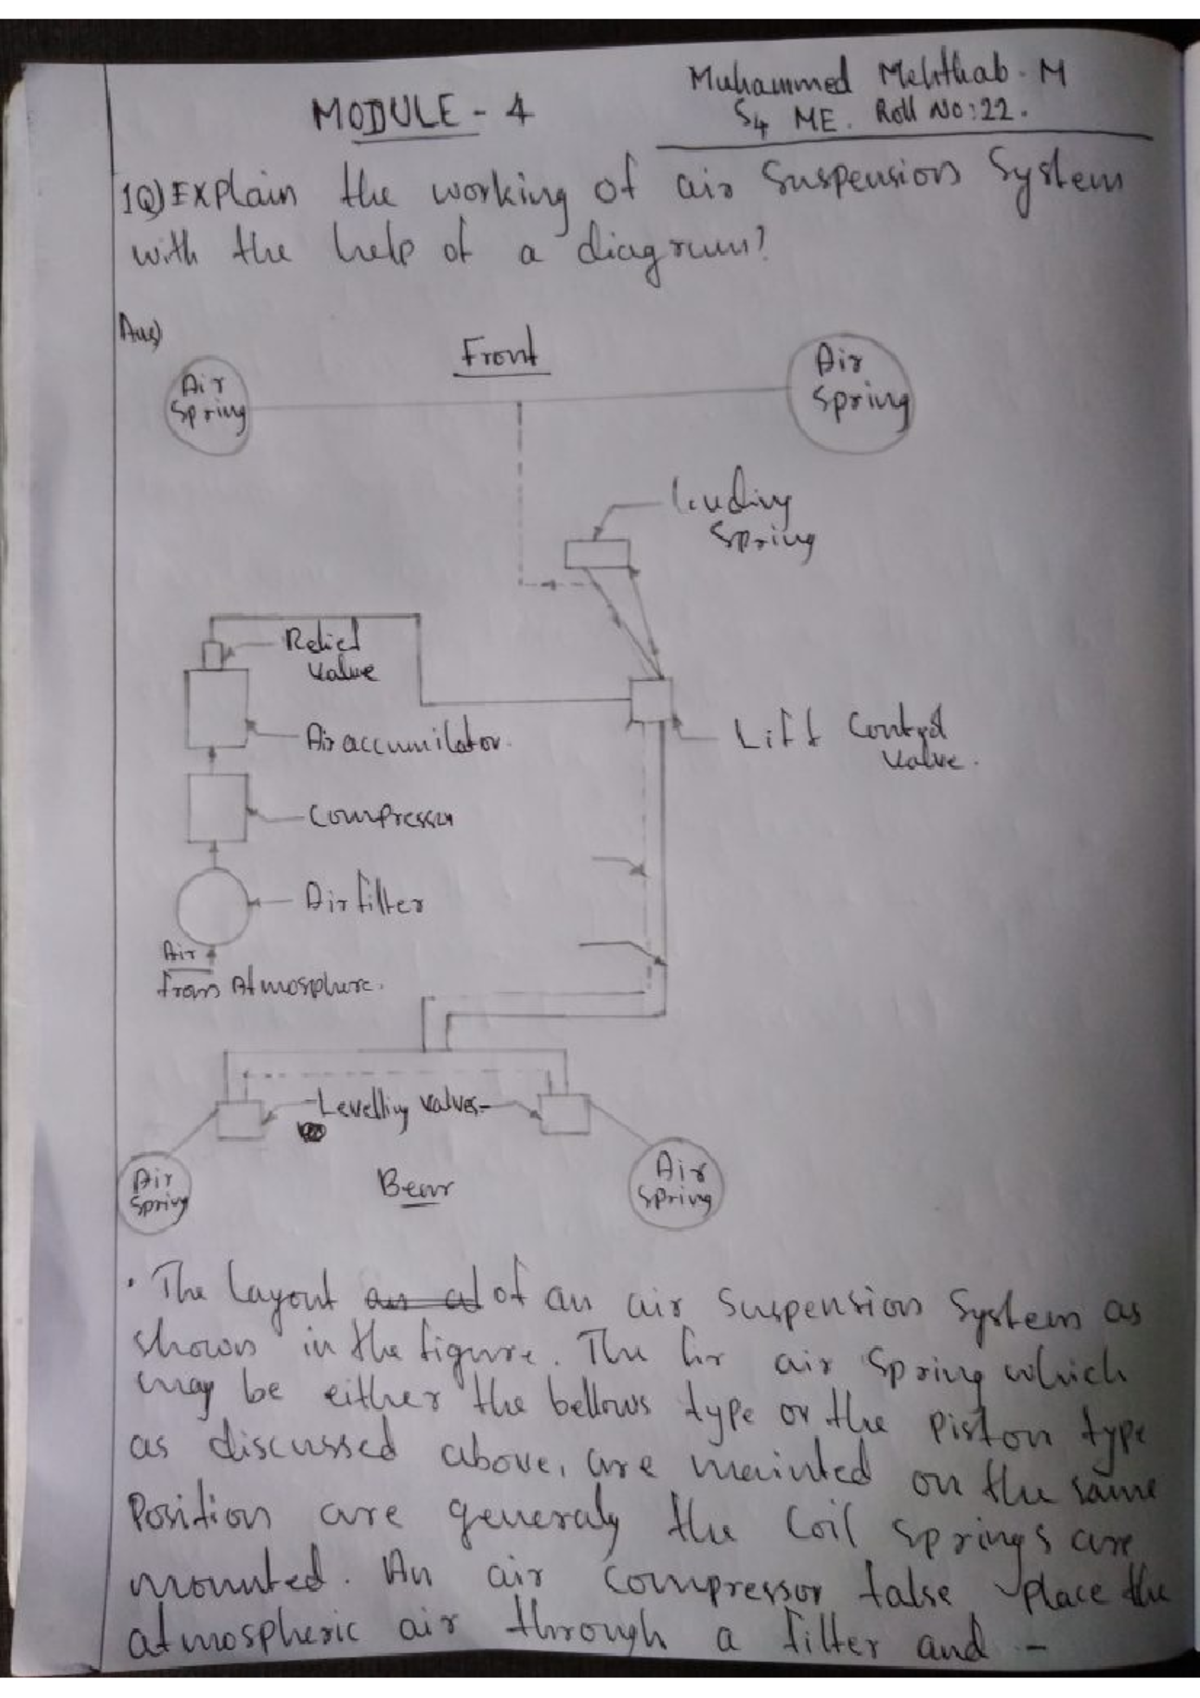 Muhammed Mehthab. M
MODULE - 4
S4 ME. Roll No: 22.
1Q) Explain the working of air suspension system
with the help of a diagram?
Ans)
Front
Air
Spring
Air
Spring
Spring
Relief
Valve
Air accumilator.
Lift Control
Valve.
Compressor
Air filter
Air
from Atmosphere.
Levelling valves
Air
Spring
Rear
Air
Spring
• The layout an al of an air suspension system as
shown in the figure. The air spring which
may be either the bellows type or the piston type
as discussed above, are mainted on the same
Position are generaly the Coil springs are
mounted. An air compressor place the
atmospheric air through a filter and -